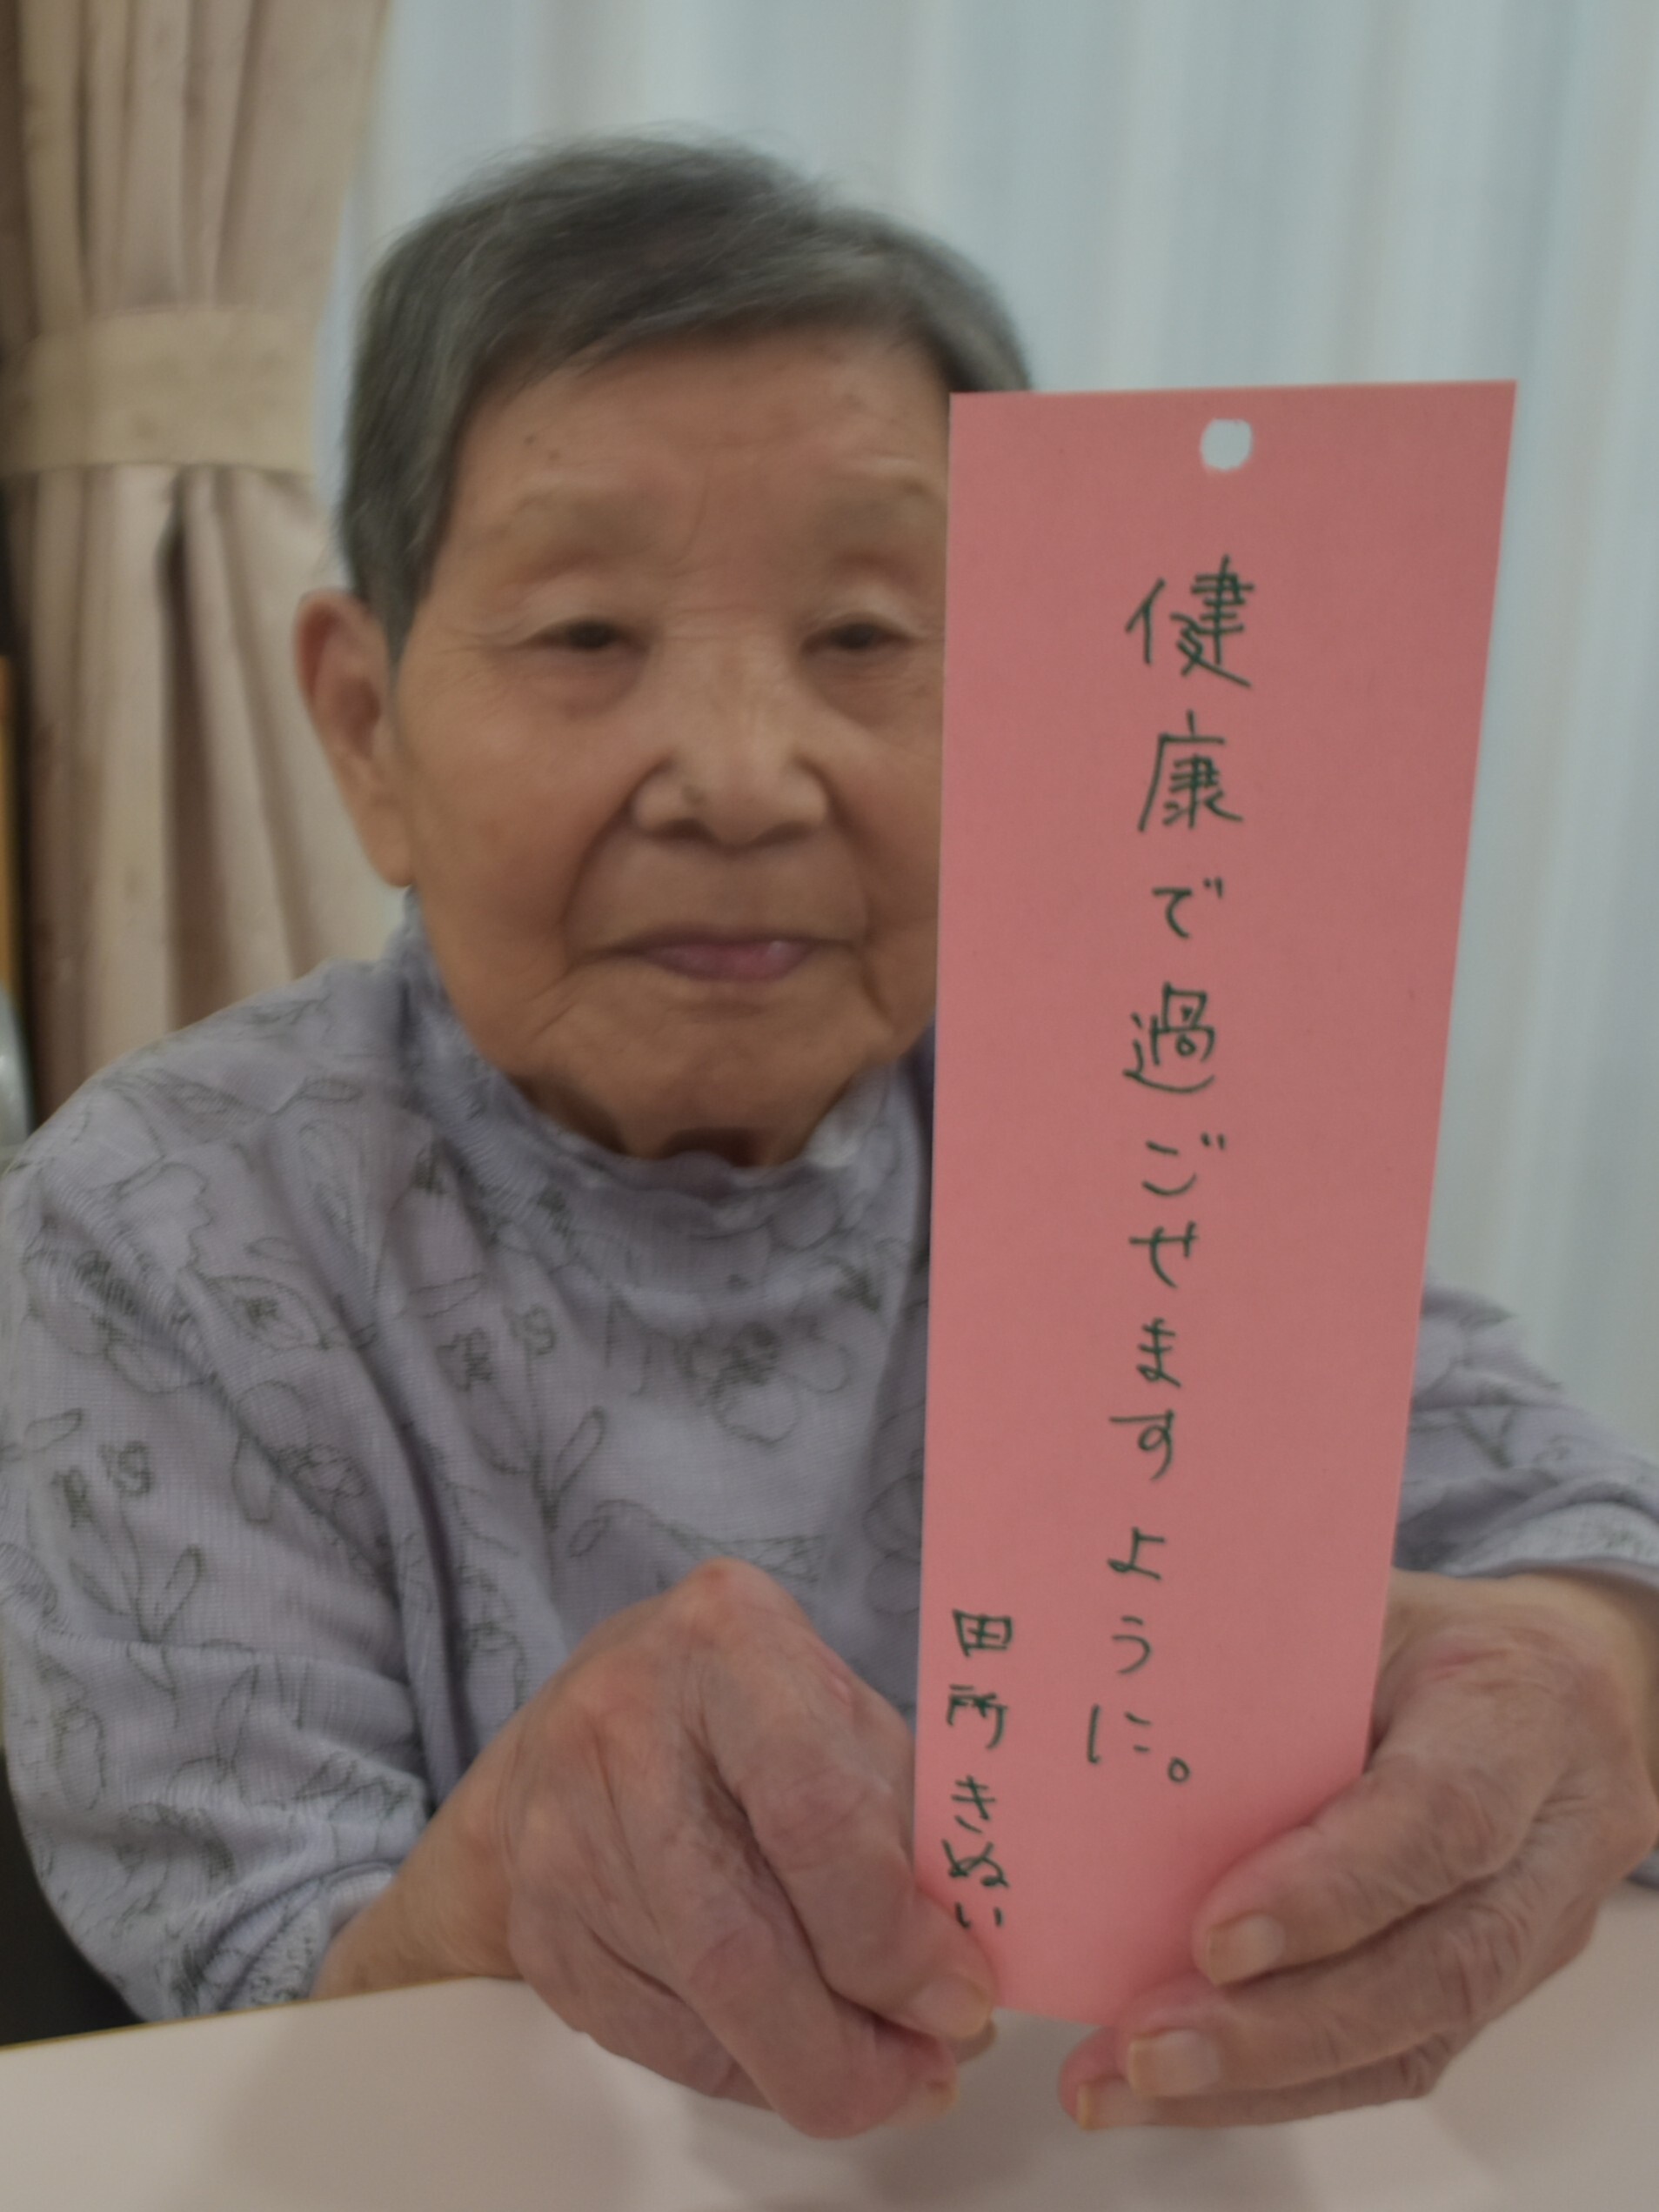 健康で過ごせますように。
田所きぬい